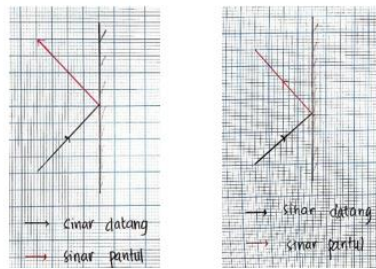 sinar datang
sinar pantul
sinar datang
sinar pantul